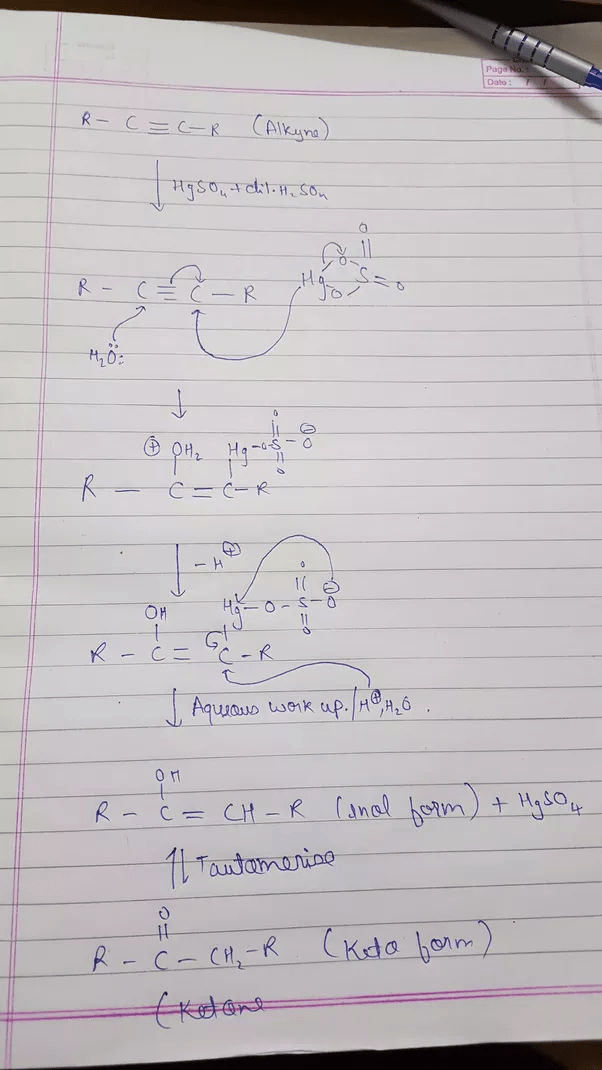 Page No.:
Date: / /
R - C ≡ C - R (Alkyne)
HgSO4 + dil. H2SO4
O
R - C ≡ C - R Hg O S = O
O
H2Ö:
O
⊕ OH2 Hg-O-S-O ⊖
O
R - C = C - R
- H⊕
O ⊖
OH Hg-O-S-O
O
R - C = C - R
Aqueous work up. / H⊕, H2O.
OH
R - C = CH - R (Enol form) + HgSO4
⇅ Tautamerise
O
R - C - CH2 - R (Keto form)
(Ketone